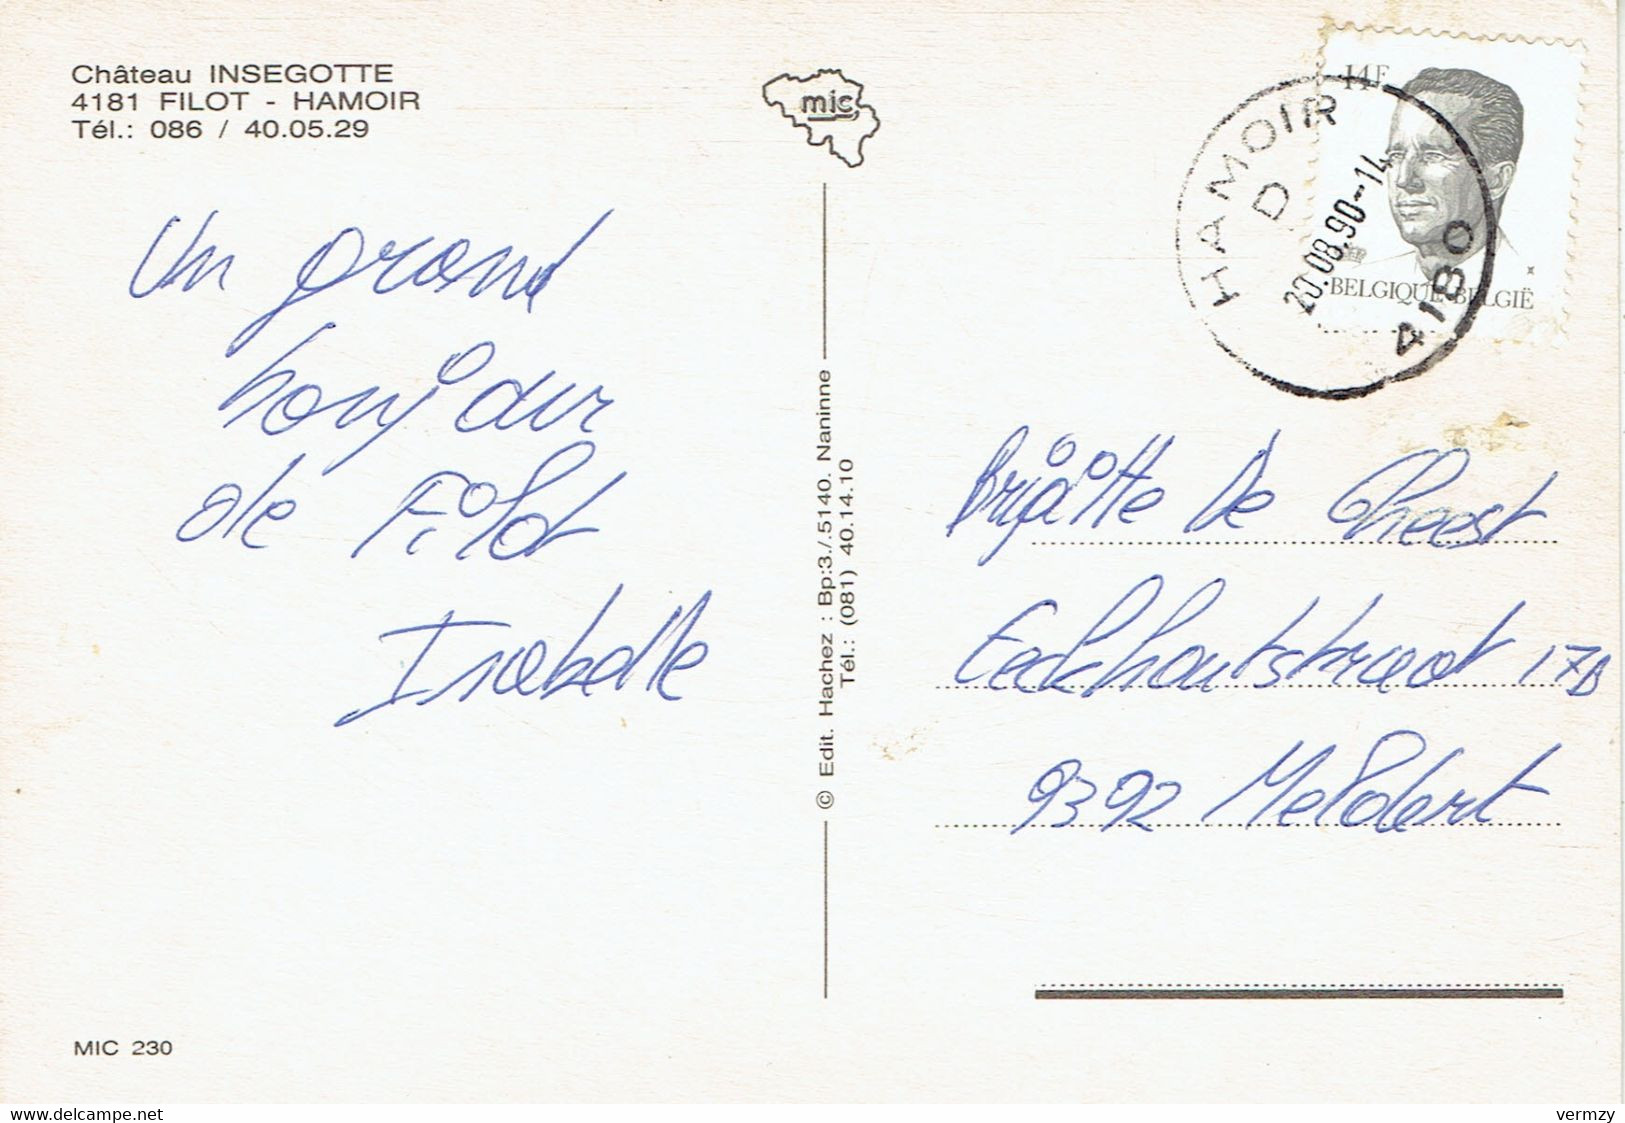 Château INSEGOTTE
4181 FILOT - HAMOIR
Tél.: 086 / 40.05.29
mic
14F
BELGIQUE-BELGIË
HAMOIR
D
20.08.90--14
4180
Un grand
bonjour
de Filot
Isabelle
© Edit. Hachez : Bp:3./.5140. Naninne
Tél.: (081) 40.14.10
Brigitte De Gheest
Eeckhoutstraat 17B
9392 Meldert
MIC 230
delcampe.net
vermzy